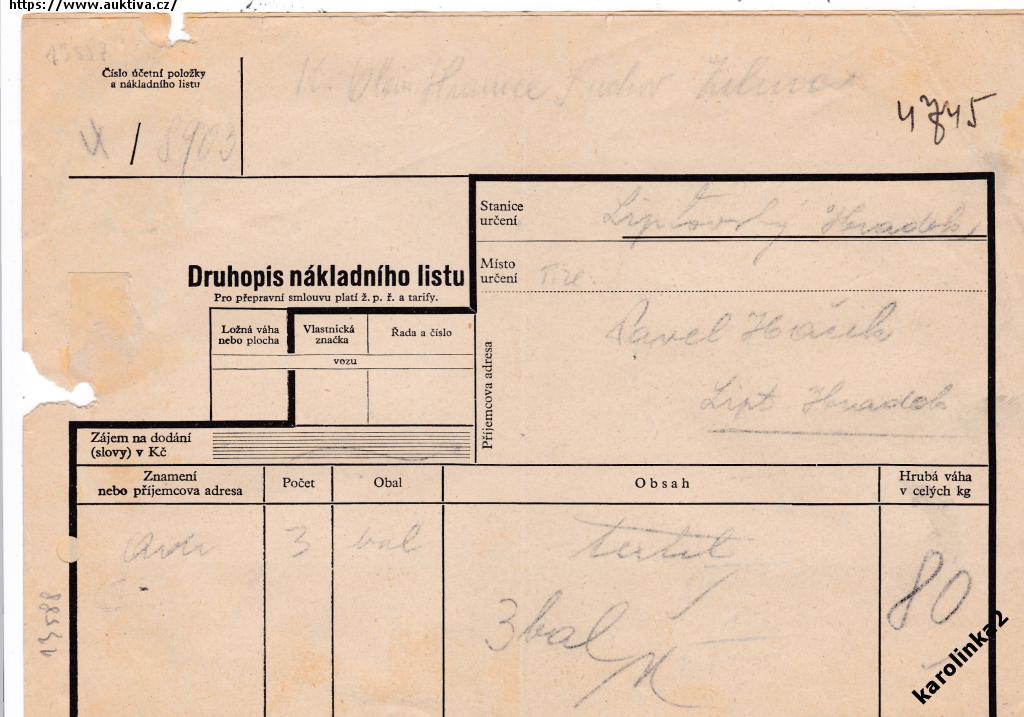 https://www.auktiva.cz/
13587
Číslo účetní položky
a nákladního listu
Hranice Púchov Žilina
/ 8903
4745
Stanice
určení
Liptovský Hradok
Druhopis nákladního listu
Pro přepravní smlouvu platí ž. p. ř. a tarify.
Místo
určení
Ložná váha
nebo plocha
Vlastnická
značka
Řada a číslo
vozu
Příjemcova adresa
Pavel Hačik
Lipt Hradok
Zájem na dodání
(slovy) v Kč
Znamení
nebo příjemcova adresa
Počet
Obal
Obsah
Hrubá váha
v celých kg
3 bal textil 80
3 bal
13588
karolinka2